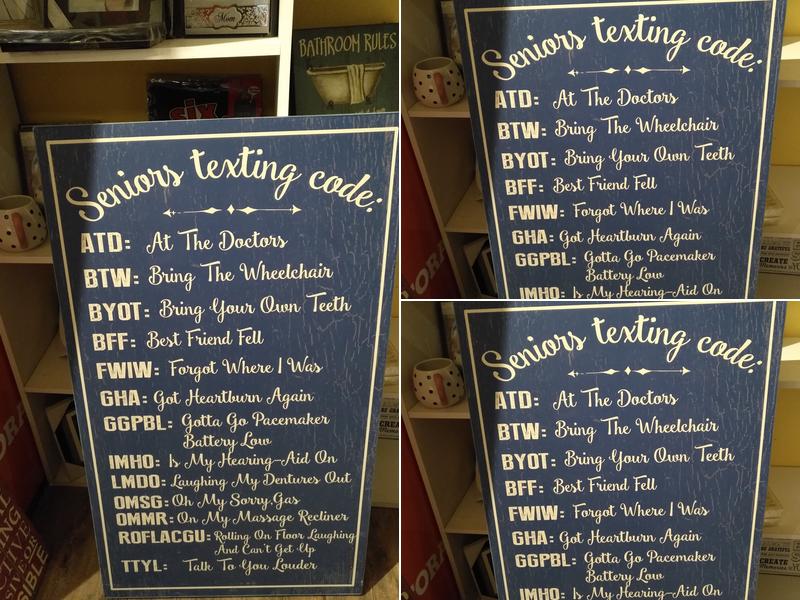 Mom
BATHROOM RULES
SIX
Seniors texting code:
ATD: At The Doctors
BTW: Bring The Wheelchair
BYOT: Bring Your Own Teeth
BFF: Best Friend Fell
FWIW: Forgot Where I Was
GHA: Got Heartburn Again
GGPBL: Gotta Go Pacemaker
Battery Low
IMHO: Is My Hearing-Aid On
LMDO: Laughing My Dentures Out
OMSG: Oh My Sorry.Gas
OMMR: On My Massage Recliner
ROFLACGU: Rolling On Floor Laughing
And Can't Get Up
TTYL: Talk To You Louder
Seniors texting code:
ATD: At The Doctors
BTW: Bring The Wheelchair
BYOT: Bring Your Own Teeth
BFF: Best Friend Fell
FWIW: Forgot Where I Was
GHA: Got Heartburn Again
GGPBL: Gotta Go Pacemaker
Battery Low
IMHO: Is My Hearing-Aid On
BE GRATEFUL
CREATE
Memories
Seniors texting code:
ATD: At The Doctors
BTW: Bring The Wheelchair
BYOT: Bring Your Own Teeth
BFF: Best Friend Fell
FWIW: Forgot Where I Was
GHA: Got Heartburn Again
GGPBL: Gotta Go Pacemaker
Battery Low
IMHO: Is My Hearing-Aid On
CREATE